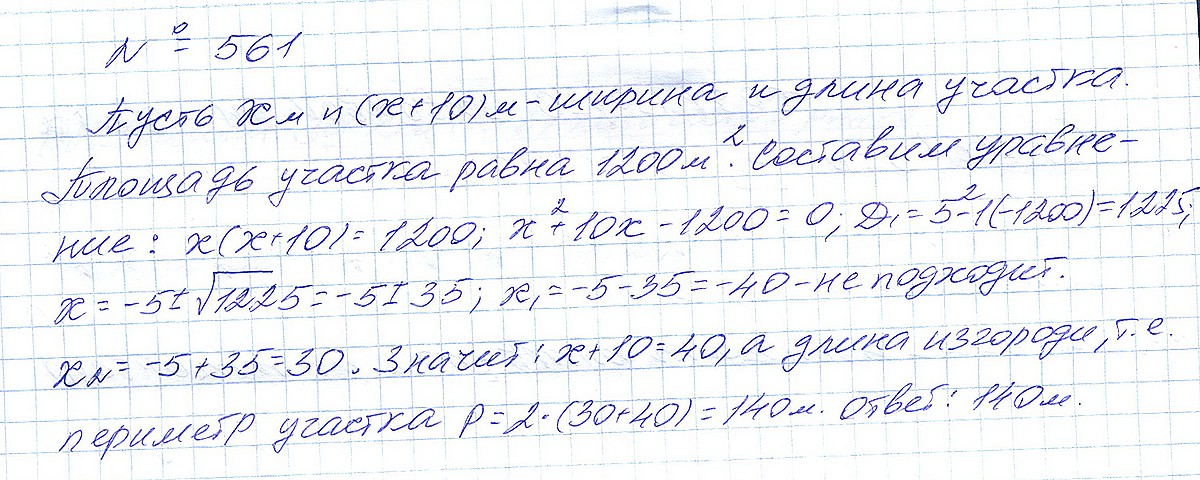 № 561
Пусть x м и (x+10) м - ширина и длина участка.
Площадь участка равна 1200 м². Составим уравне-
ние: x(x+10) = 1200; x²+10x-1200=0; D₁=5²-1(-1200)=1225;
x = -5±√1225=-5±35; x₁=-5-35=-40-не подходит.
x₂=-5+35=30. Значит: x+10=40, а длина изгороди, т.е.
периметр участка P=2·(30+40)=140м. ответ: 140м.